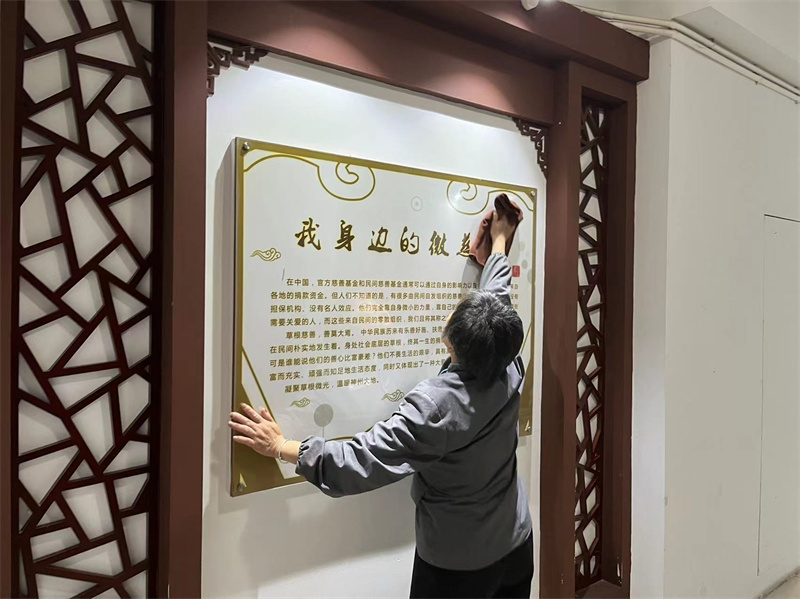 我身边的微慈
在中国，官方慈善基金和民间慈善基金通常可以通过自身的影响力以
各地的捐款资金。但人们不知道的是，有很多由民间自发组织的慈善
担保机构、没有名人效应。他们完全靠自身微小的力量，靠自己的
需要关爱的人，而这些来自民间的零散组织，我们且将其称之
草根慈善，善莫大焉。中华民族历来有乐善好施、扶
在民间朴实地发生着。身处社会底层的草根，终其一生的
可是谁能说他们的善心比富豪差？他们不畏生活的艰辛，
富而充实、顽强而知足地生活态度，同时又体现出了一种大
凝聚草根微光，温暖神州大地。